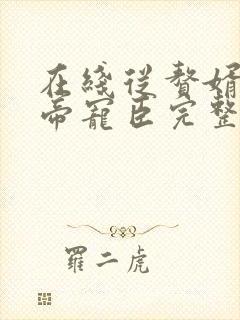 在綫從贅婿
帝寵臣完整
羅二虎